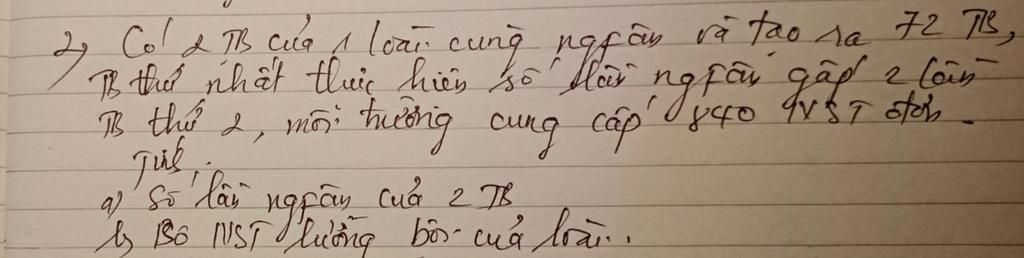 2, Có 2 TB của 1 loài cùng ngfân và tạo ra 72 TB,
TB thứ nhất thực hiện số lần ngfân gấp 2 lần
TB thứ 2, môi trường cung cấp 840 NST đơn.
Tính:
a) Số lần ngfân của 2 TB
b) Bộ NST lưỡng bội của loài.